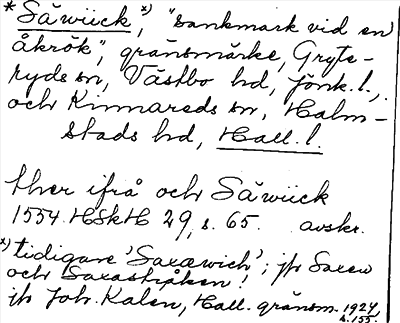 * Såwiick *), "sankmark vid en
åkrök", gränsmärke, Gryte-
ryds sn, Västbo hd, Jönk. l.,
och Kinnareds sn, Halm-
stads hd, Hall. l.
ther ifrå och Såwiick
1554 HSkH 29, s. 65. avskr.
*) tidigare 'Saxæwich'; jfr Saxen
och Saxastråken!
jfr Joh. Kalén, Hall. gränsm. 1924,
s. 155.